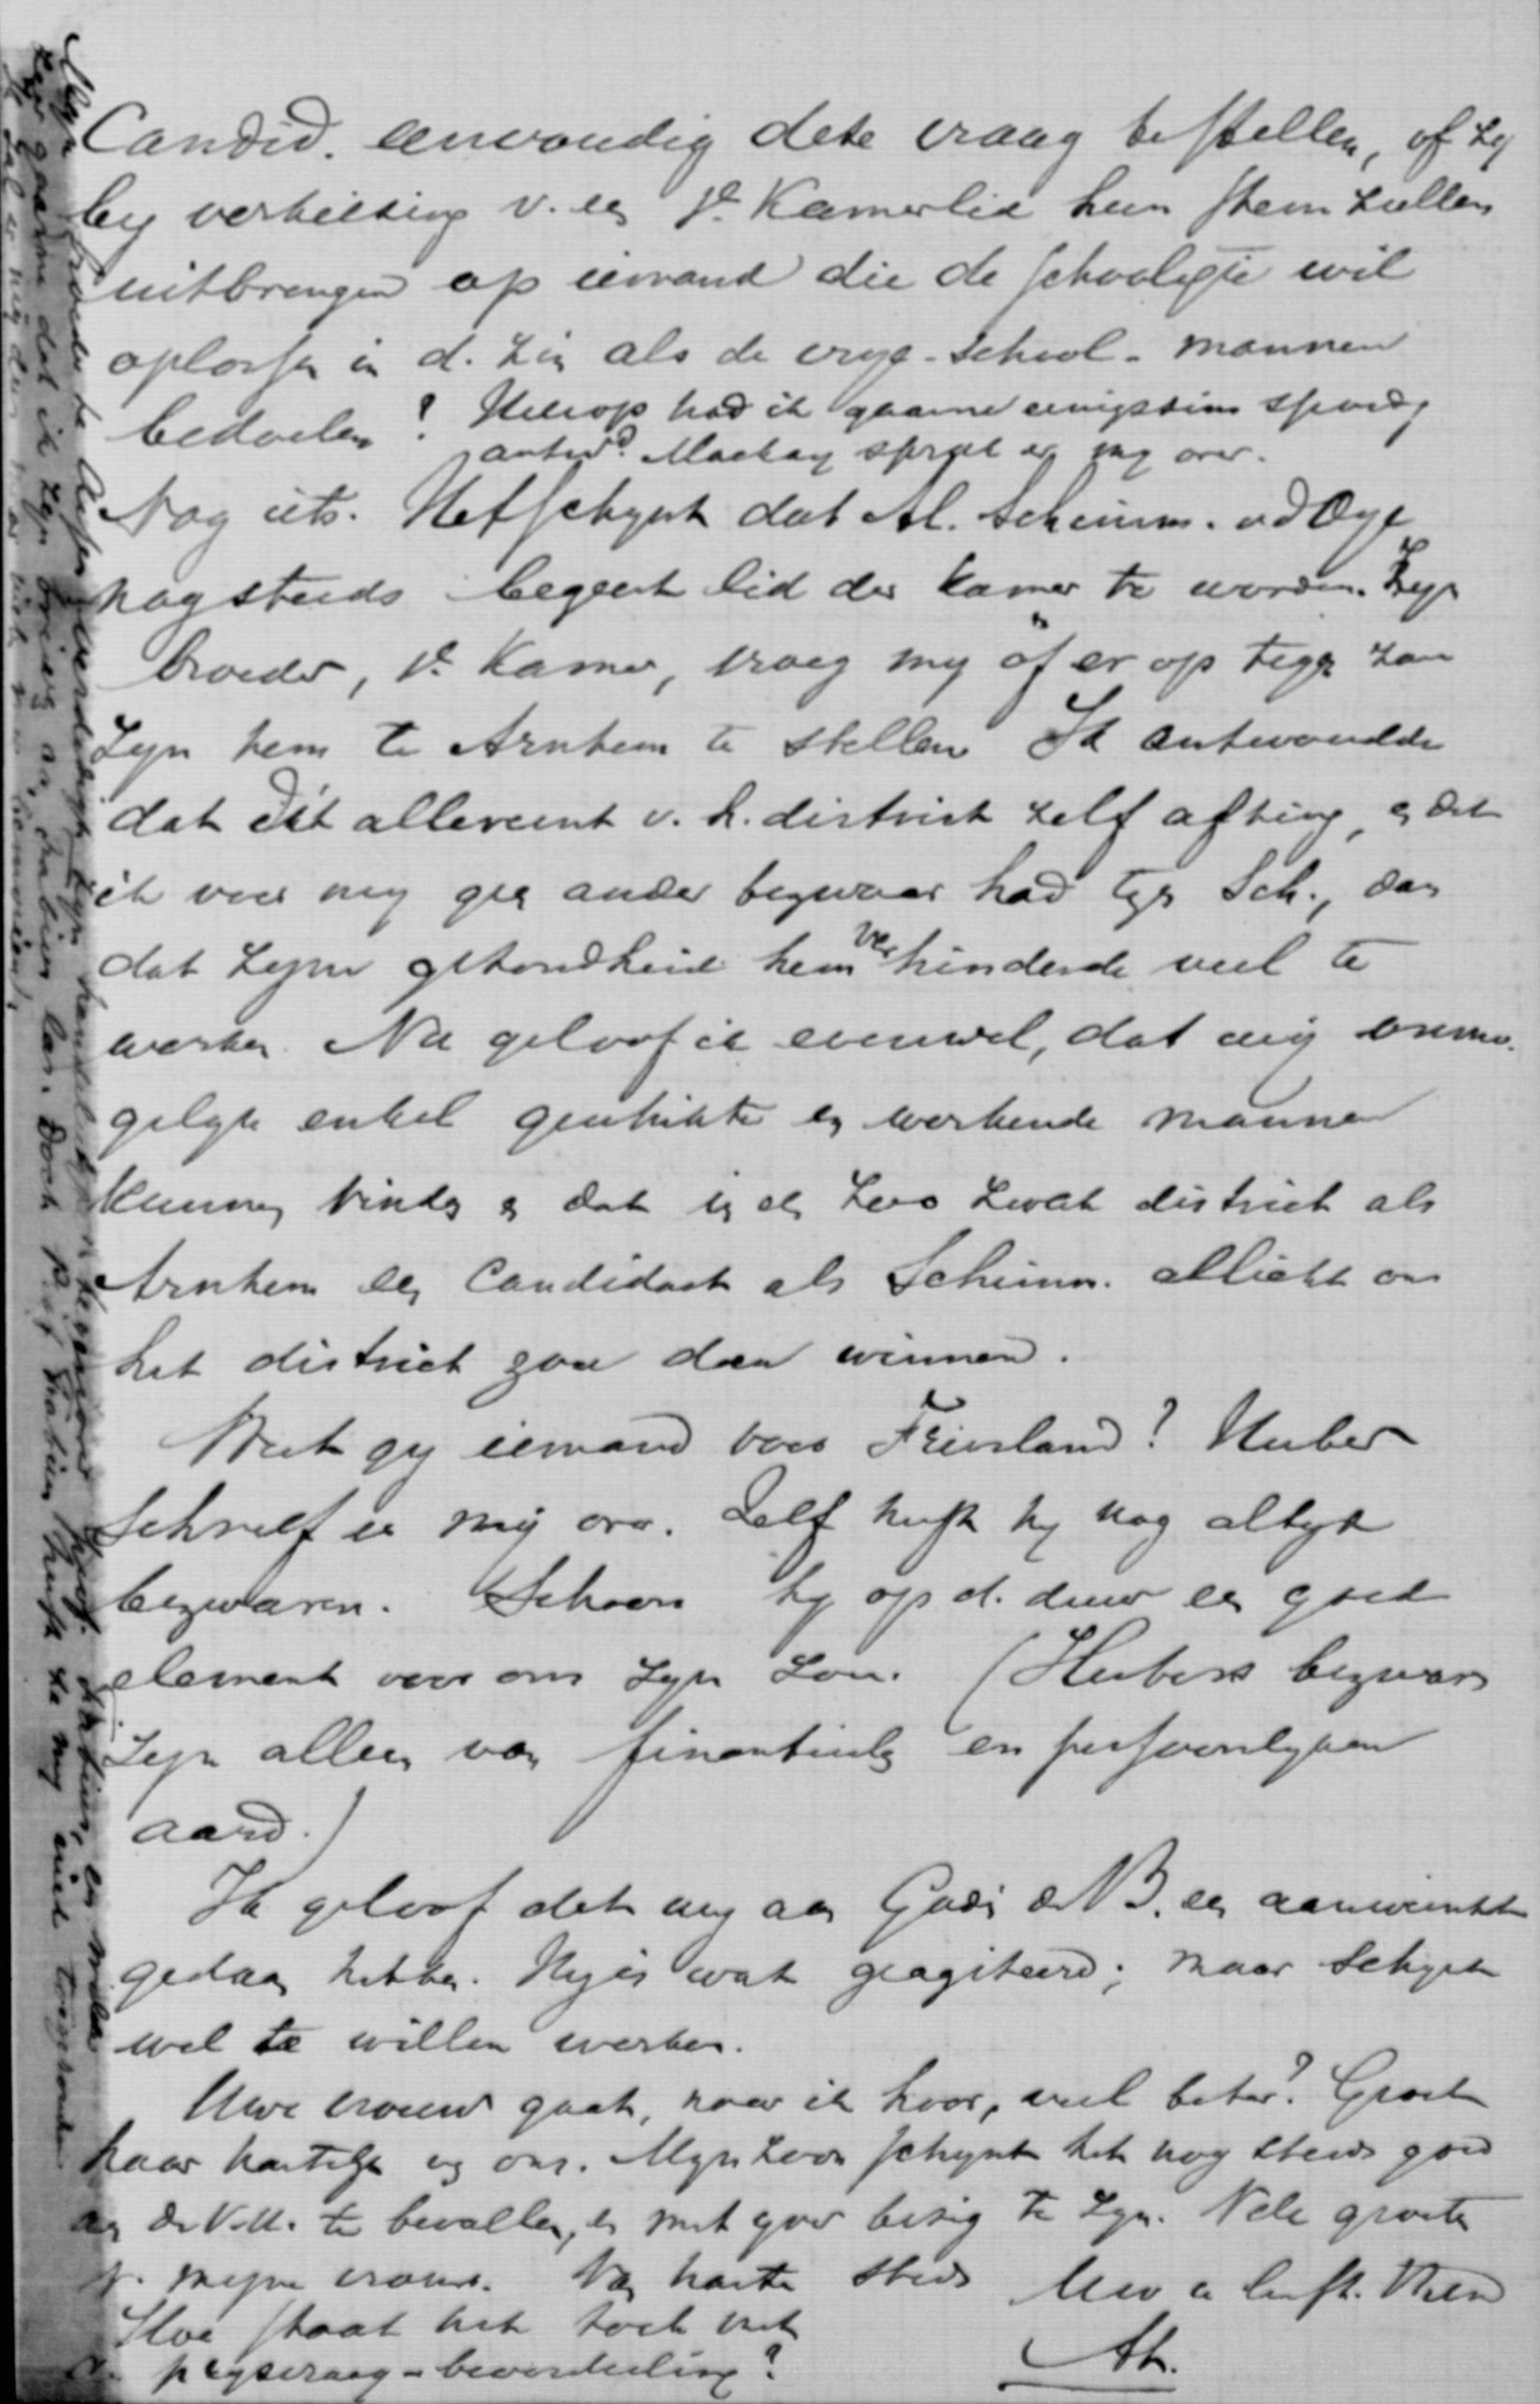 Candid. eenvoudig deze vraag te stellen, of zy
by verkiezing v. een 1e Kamerlid hun stem zullen
uitbrengen op iemand die de schoolqtie wil
oplossen in d. zin als de vrye-school-mannen
bedoelen? Hierop had ik gaarne eenigszins spoedig
antwd. Mackay sprak er my over.
Nog iets. Het schynt dat Al. Schimm. vd Oye
nog steeds begeert lid der Kamer te worden. Zyn
broeder, 1e Kamer, vroeg my of er op tegen zou
zyn hem te Arnhem te stellen. Ik antwoordde
dat dit allereerst v. h. district zelf afhing, en dat
ik voor my geen ander bezwaar had tegen Sch., dan
dat zyne gezondheid hem verhinderde veel te
werken. Nu geloof ik evenwel, dat wij onmo-
gelyk enkel geschikte en werkende mannen
kunnen vinden en dat in een zoo zwak district als
Arnhem een Candidaat als Schimm. allicht ons
het district zou doen winnen.
Weet gy iemand voor Friesland? Huber
schreef er mij over. Zelf heeft hy nog altyd
bezwaren. Schoon hy op d. duur een goed
element voor ons zyn zou. (Hubers bezwaren
zyn alleen van financieelen en persoonlyken
aard.)
Ik geloof dat wy aan in de NB. een aanwinst
gedaan hebben. Hy is wat geagiteerd; maar schynt
wel te willen werken.
Uwe vrouw gaat, naar ik hoor, veel beter? Groet
haar hartelyk van ons. Myn zoon schynt het nog steeds goed
aan de V.U. te bevallen, en met yver bezig te zyn. Vele groeten
v. myne vrouw. Van harte steeds Uw a liefh. Vriend
Hoe staat het toch met AL.
de prysvraag-beoordeeling?